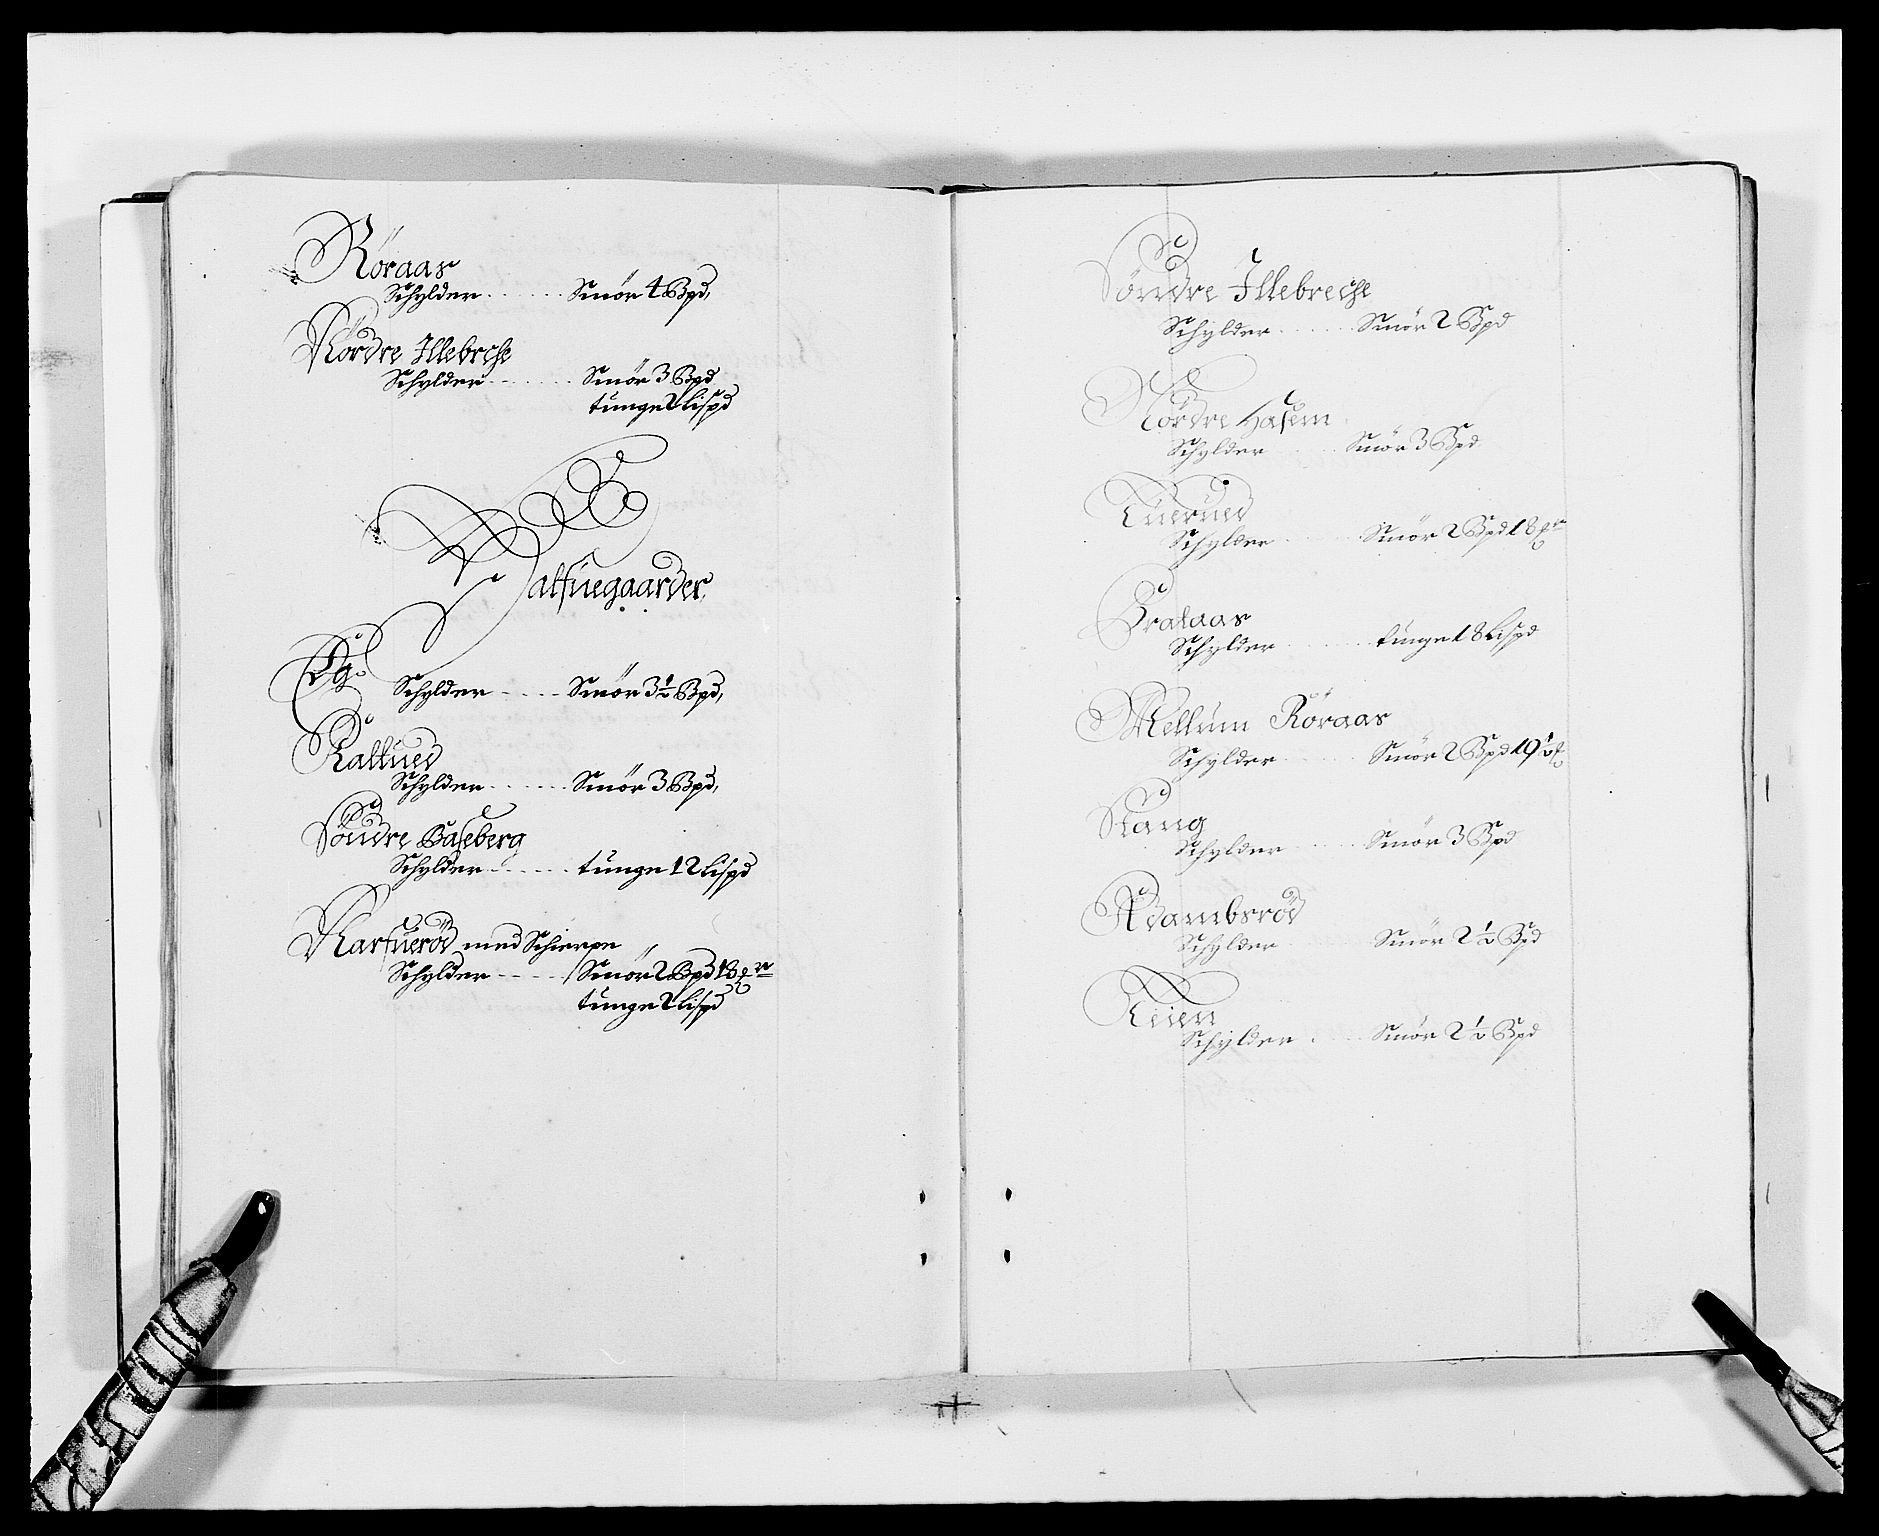 Röraas
Schylder ...... Smör 4 Bpd,
Nördre Illebrche
Schylder ...... Smör 3 Bpd
tunge 2 Lispd
Halfuegaarder
Eg.
Schylder .... Smör 3½ Bpd,
Raltued
Schylder ...... Smör 3 Bpd,
Söndre Baseberg
Schylder ...... tunge 12 Lispd
Narfueröd med Schierpe
Schylder ..... Smör 2 Bpd
tunge 2 Lispd
Söndre Illebreche
Schylder ...... Smör 2 Bpd
Nördre Hasem
Schylder ..... Smör 3 Bpd
Tuerued
Schylder ..... Smör 2 Bpd 18
Schylder ...... tunge 18 Lispd
Mellum Röraas
Schylder ...... Smör 2 Bpd 19½
Stang
Schylder ...... Smör 3 Bpd
Adambsröd
Schylder Smör 2½ Bpd
Schylder .... Smör 2½ Bpd